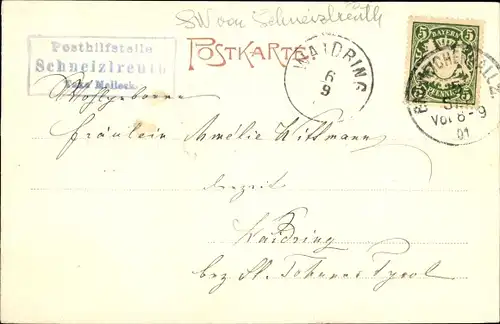 SW von Schneizlreuth
Posthilfstelle
Schneizlreuth
POSTKARTE.
WAIDRING
6
9
5 BAYERN 5
5 PFENNIG 5
Vor 8-9
01
Wohlgeboren
Fräulein Amélie Wittmann
derzeit
Waidring
bez St. Johann Tyrol